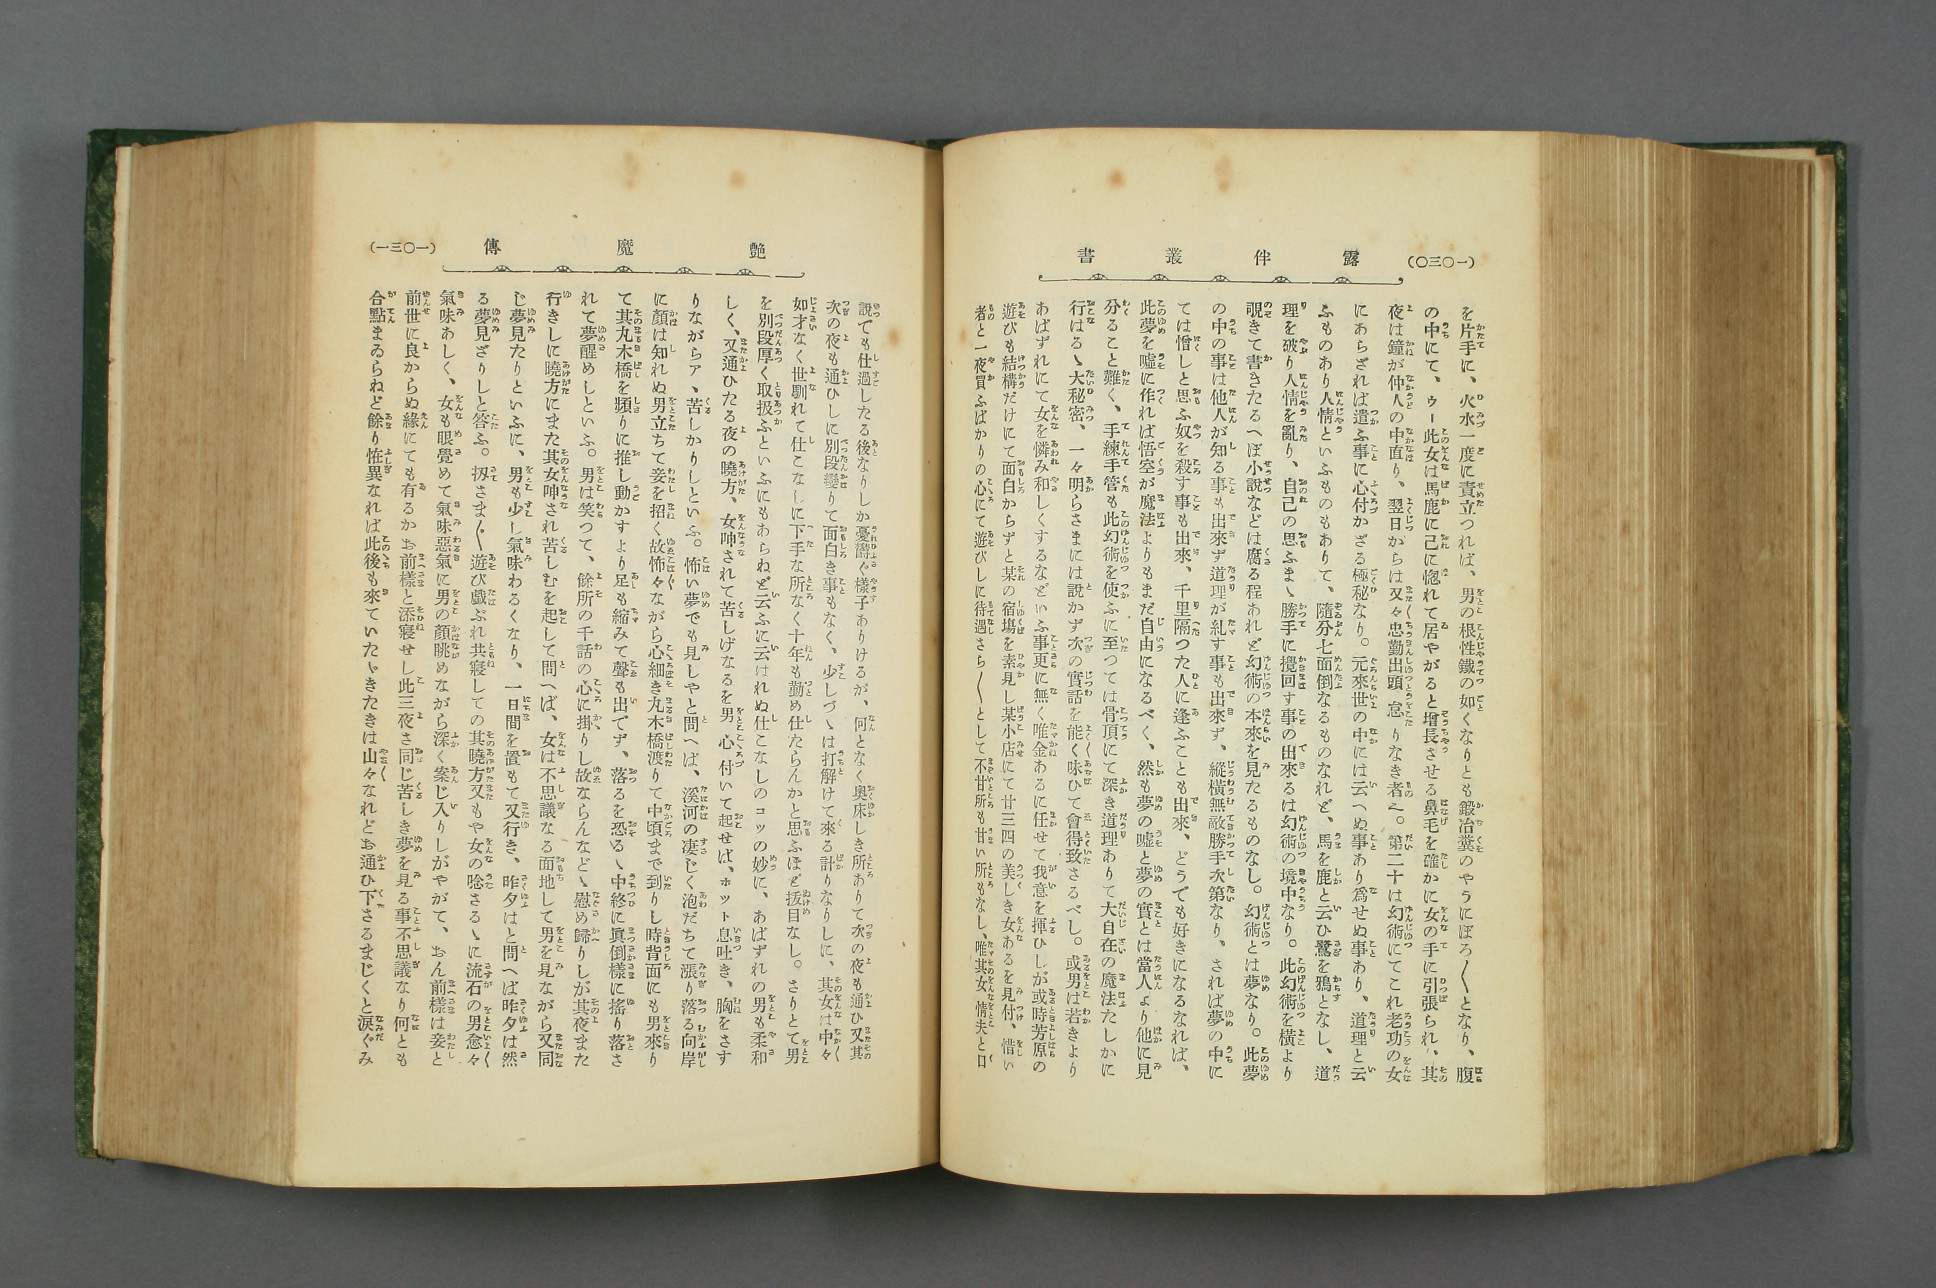 (一〇三〇)
露伴叢書
を片手に、火水一度に責立つれば、男の根性鐵の如くなりとも鍛冶糞のやうにぼろ〳〵となり、腹
の中にて、ウー此女は馬鹿に己に惚れて居やがると増長させる鼻毛を確かに女の手に引張られ、其
夜は鐘が仲人の中直り、翌日からは又々忠勤出頭怠りなき者也。第二十は幻術にてこれ老功の女
にあらざれば遣ふ事に心付かざる極秘なり。元來世の中には云へぬ事あり爲せぬ事あり、道理と云
ふものあり人情といふものもありて、隨分七面倒なるものなれど、馬を鹿と云ひ鷺を鴉となし、道
理を破り人情を亂り、自己の思ふまゝ勝手に攪回す事の出來るは幻術の境中なり。此幻術を横より
覗きて書きたるへぼ小説などは腐る程あれど幻術の本來を見たるものなし。幻術とは夢なり。此夢
の中の事は他人が知る事も出來ず道理が糺す事も出來ず、縱横無敵勝手次第なり、されば夢の中に
ては憎しと思ふ奴を殺す事も出來、千里隔つた人に逢ふことも出來、どうでも好きになるなれば、
此夢を嘘に作れば悟空が魔法よりもまだ自由になるべく、然も夢の嘘と夢の實とは當人より他に見
分ること難く、手練手管も此幻術を使ふに至つては骨頂にて深き道理ありて大自在の魔法たしかに
行はるゝ大秘密、一々明らさまには説かず次の實話を能く味ひて會得致さるべし。或男は若きより
あばずれにて女を憐み和しくするなどいふ事更に無く唯金あるに任せて我意を揮ひしが或時芳原の
遊びも結構だけにて面白からずと某の宿塲を素見し某小店にて廿三四の美しき女あるを見付、惜い
者と一夜買ふばかりの心にて遊びしに待遇さら〳〵として不甘所も甘い所もなし、唯其女情夫と口
艷魔傳
(一〇三一)
説でも仕過したる後なりしか憂鬱ぐ樣子ありけるが、何となく奧床しき所ありて次の夜も通ひ又其
次の夜も通ひしに別段變りて面白き事もなく、少しづゝは打解けて來る計りなりしに、其女は中々
如才なく世馴れて仕こなしに下手な所なく十年も勤め仕たらんかと思ふほど拔目なし。さりとて男
を別段厚く取扱ふといふにもあらねど云ふに云はれぬ仕こなしのコツの妙に、あばずれの男も柔和
しく、又通ひたる夜の曉方、女呻されて苦しげなるを男心付いて起せば、ホット息吐き、胸をさす
りながらア、苦しかりしといふ。怖い夢でも見しやと問へば、溪河の凄じく泡だちて漲り落る向岸
に顏は知れぬ男立ちて妾を招く故怖々ながら心細き丸木橋渡りて中頃まで到りし時背面にも男來り
て其丸木橋を頻りに推し動かすより足も縮みて聲も出でず、落るを恐るゝ中終に眞倒樣に搖り落さ
れて夢醒めしといふ。男は笑つて、餘所の千話の心に掛りし故ならんなどゝ慰め歸りしが其夜また
行きしに曉方にまた其女呻され苦しむを起して問へば、女は不思議なる面地して男を見ながら又同
じ夢見たりといふに、男も少し氣味わるくなり、一日間を置もて又行き、昨夕はと問へば昨夕は然
る夢見ざりしと答ふ。扨さま〴〵遊び戲ぶれ共寢しての其曉方又もや女の唸さるゝに流石の男愈々
氣味あしく、女も眼覺めて氣味惡氣に男の顏眺めながら深く案じ入りしがやがて、おん前樣は妾と
前世に良からぬ緣にても有るかお前樣と添寢せし此三夜さ同じ苦しき夢を見る事不思議なり何とも
合點まゐらねど餘り恠異なれば此後も來ていたゞきたきは山々なれどお通ひ下さるまじくと淚ぐみ